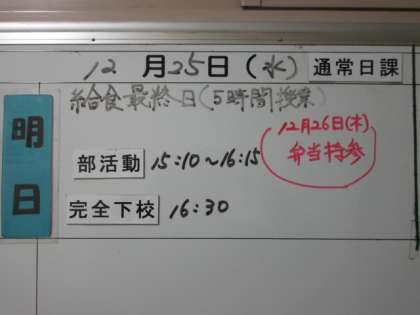 12月25日(水) 通常日課
明日
給食最終日(5時間授業)
12月26日(木)
弁当持参
部活動 15:10~16:15
完全下校 16:30